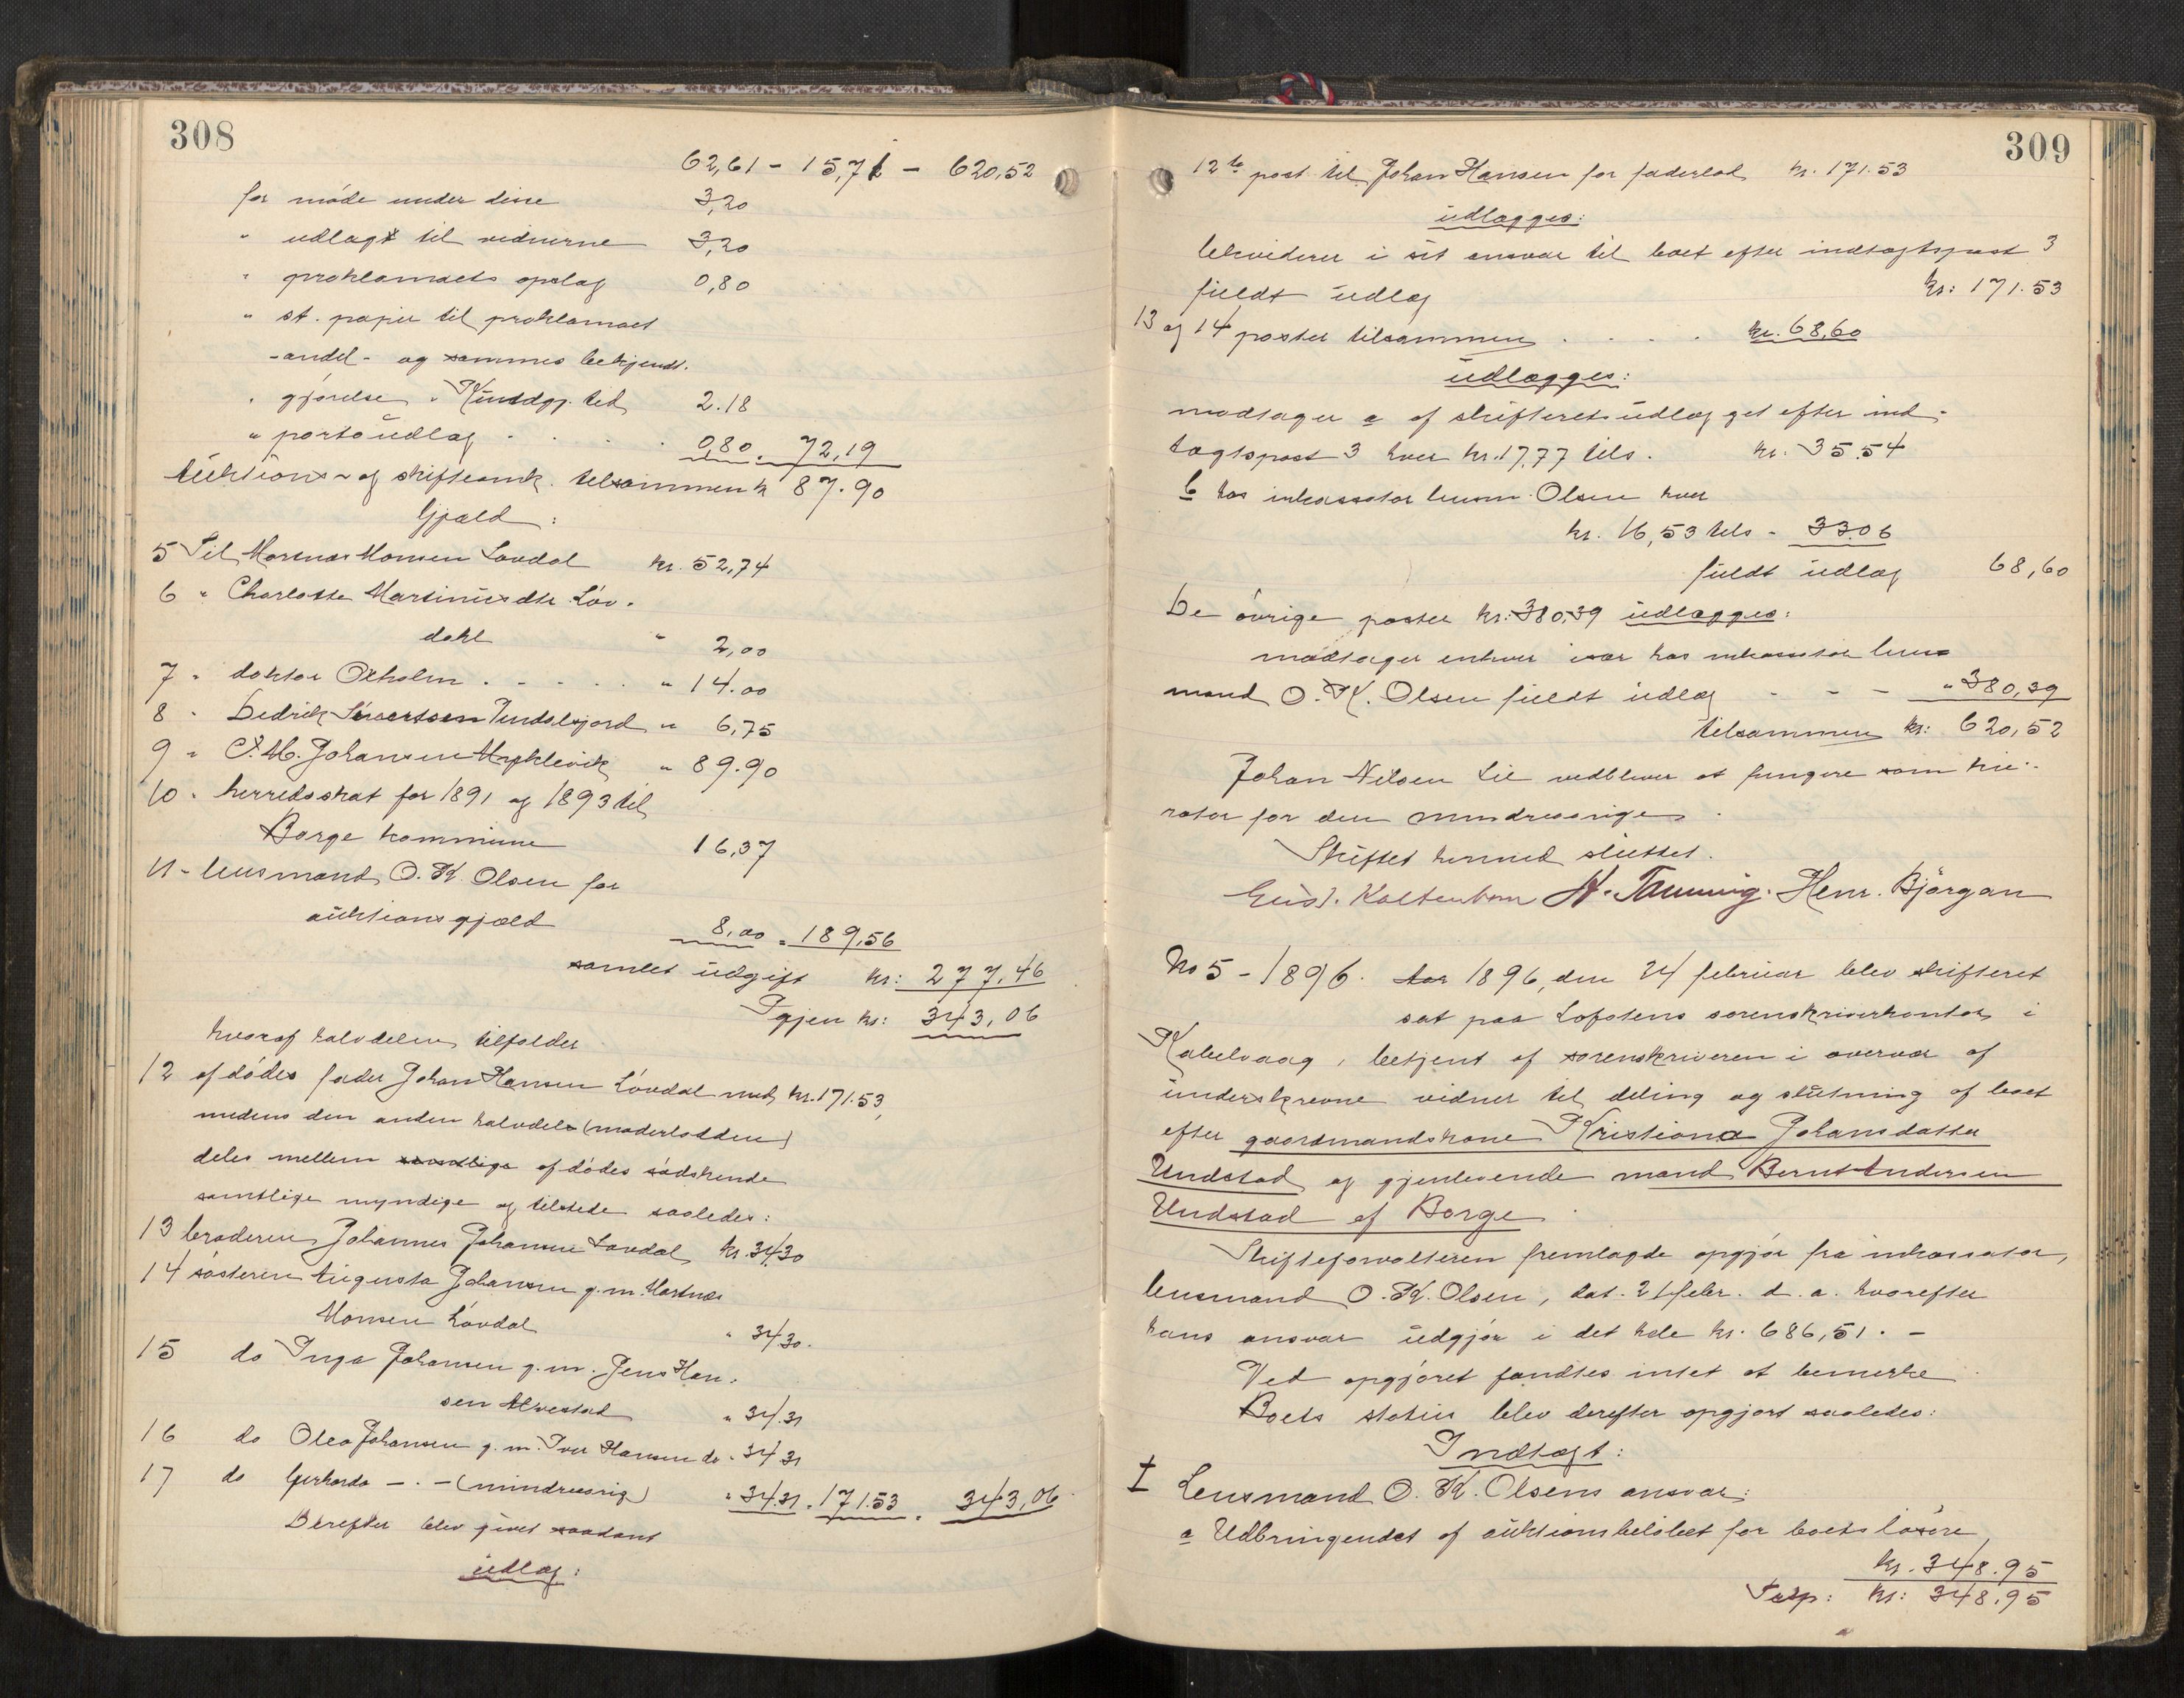 308
62,61 - 15,71 - 620,52
for møde under disse 3,20
" udlagt til vidnerne 3,20
" proklamaets opslag 0,80
" st. papir til proklamaet
-andel- og sammes bekjendt.
gjørelse i Kundgj. tid 2.18
" portoudlæg . . . . 0,80. 72,19
auktions- og skifteomk. tilsammen kr 87.90
Gjæld:
5 Til Martnæs Monsen Løvdal kr. 52,74
6 " Charlotte Martinusdtr Løv-
dahl " 2,00
7 " doktor Oxholm . - . . . " 14.00
8 " Dedrik Sivertsen Vendalsjord " 6,75
9 " C. M. Johansen Myklevik " 89.90
10 " herredsskat for 1891 og 1893 til
Borge kommune 16,37
11 - lensmand O. K. Olsen for
auktionsgjæld 8,00 = 189,56
samlet udgift kr: 277.46
Igjen kr: 343,06
hvoraf halvdelen tilfalder
12 afdødes fader Johan Hansen Løvdal med kr. 171.53,
medens den anden halvdel (moderlodden)
deles mellem afdødes sødskende
samtlige myndige og tilstede saaledes:
13 broderen Johannes Johansen Løvdal kr. 34.30
14 søsteren Augusta Johansen g. m. Martnæs
Monsen Løvdal " 34.30.
15 do Inga Johansen g. m. Jens Han-
sen Alvestad " 34.31
16 do Olea Johansen g. m. Iver Hansen do " 34.31
17 do Gerharda - . - (mindreaarig) " 34.31. 171.53. 343,06
Derefter blev givet saadant
udlæg:
309
12te post til Johan Hansen for faderlod kr. 171.53
udlægges:
likviderer i sit ansvar til boet efter indtægtspost 3
fuldt udlæg kr: 171.53
13 og 14 poster tilsammen . . . . kr. 68,60
udlægges:
modtager a af skifteret udlægget efter ind-
tægtspost 3 hver kr. 17,77 tils. kr. 35.54
b hos inkassator lensm. Olsen hver
kr. 16,53 tils - 33.06
fuldt udlæg 68,60
De øvrige poster kr: 380,39 udlægges:
modtager enhver især hos inkassator lens
mand O. K. Olsen fuldt udlæg - - - " 380,39
tilsammen kr: 620,52
Johan Nilsen Lie vedbliver at fungere som ku-
rator for den mindreaarige.
Skiftet hermed sluttet.
Gust. Kaltenborn H. Tanning. Henr. Bjørgan
No 5 - 1896. Aar 1896, den 24 februar blev skifteret
sat paa Lofotens sorenskriverkontor i
Kabelvaag, betjent af sorenskriveren i overvær af
underskrevne vidner til deling og slutning af boet
efter gaardmandskone Kristiana Johansdatter
Undstad og gjenlevende mand Bernt Andersen
Undstad af Borge.
Skifteforvalteren fremlagde opgjør fra inkassator,
lensmand O. K. Olsen, dat. 21 febr. d. a. hvorefter
hans ansvar udgjør i det hele kr. 686,51. -
Ved opgjøret fandtes intet at bemerke.
Boets status blev derefter opgjort saaledes:
Indtægt:
I Lensmand O. K. Olsens ansvar:
a Udbringendet af auktionsbeløbet for boets løsøre
kr. 348.95
Transp: kr: 348.95